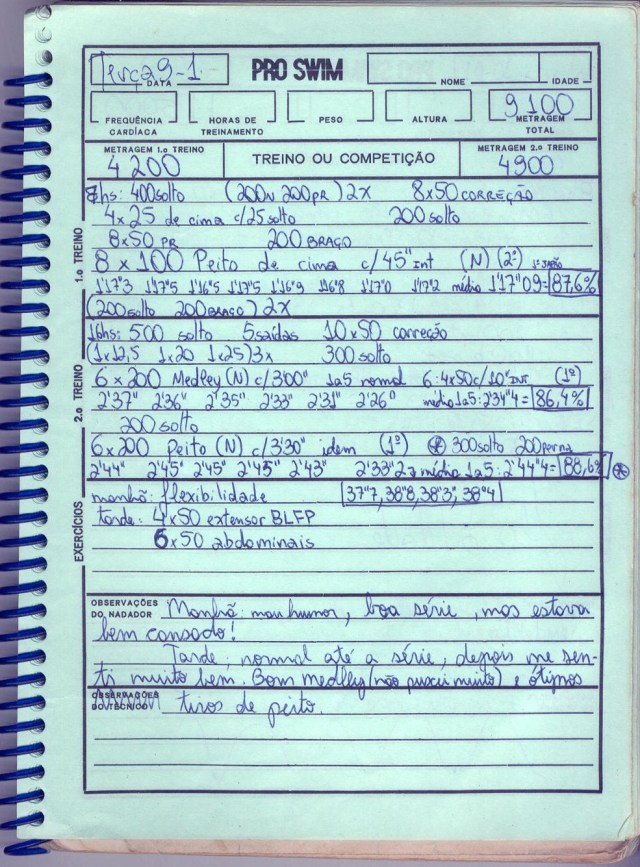 Terça 9-1
DATA
PRO SWIM
NOME
IDADE
FREQUÊNCIA CARDÍACA
HORAS DE TREINAMENTO
PESO
ALTURA
9100
METRAGEM TOTAL
METRAGEM 1.o TREINO
4200
TREINO OU COMPETIÇÃO
METRAGEM 2.o TREINO
4900
1.o TREINO
8hs: 400 solto (200N 200PR) 2X 8x50 CORREÇÃO
4x25 de cima c/25 solto 200 solto
8x50 PR 200 BRAÇO
8 x 100 Peito de cima c/45" Int (N) (2ª)
1'17"3 1'17"5 1'16"5 1'17"5 1'16"9 1'16"8 1'17"0 1'17"2 média 1'17"09=87,6%
(200 solto 200 BRAÇO) 2X
2.o TREINO
16hs: 500 solto 5 saídas 10x50 correção
(1x12,5 1x20 1x25) 3x 300 solto
6 x 200 Medley (N) c/3'00" 1a5 normal 6: 4x50 c/10" INT (1ª)
2'37" 2'36" 2'35" 2'33" 2'31" 2'26" média 1a5: 2'34"4= 86,4%
200 solto
6x200 Peito (N) c/3'30" idem (1ª) 300 solto 200 perna
2'44" 2'45" 2'45" 2'45" 2'43" 2'33"2 média 1a5: 2'44"4= 88,6%
EXERCÍCIOS
manhã: flexibilidade 37"7, 38"8, 38"3, 38"4
tarde: 4x50 extensor BLFP
6x50 abdominais
OBSERVAÇÕES DO NADADOR
Manhã: mau humor, boa série, mas estava
bem cansado!
Tarde: normal até a série, depois me sen-
ti muito bem. Bom medley (não puxei muito) e ótimos
OBSERVAÇÕES DO TÉCNICO
tiros de peito.